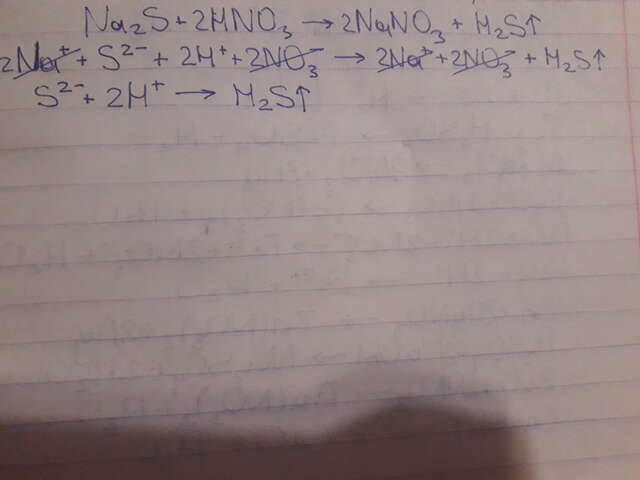 Na₂S + 2HNO₃ → 2NaNO₃ + H₂S↑
2Na⁺ + S²⁻ + 2H⁺ + 2NO₃⁻ → 2Na⁺ + 2NO₃⁻ + H₂S↑
S²⁻ + 2H⁺ → H₂S↑